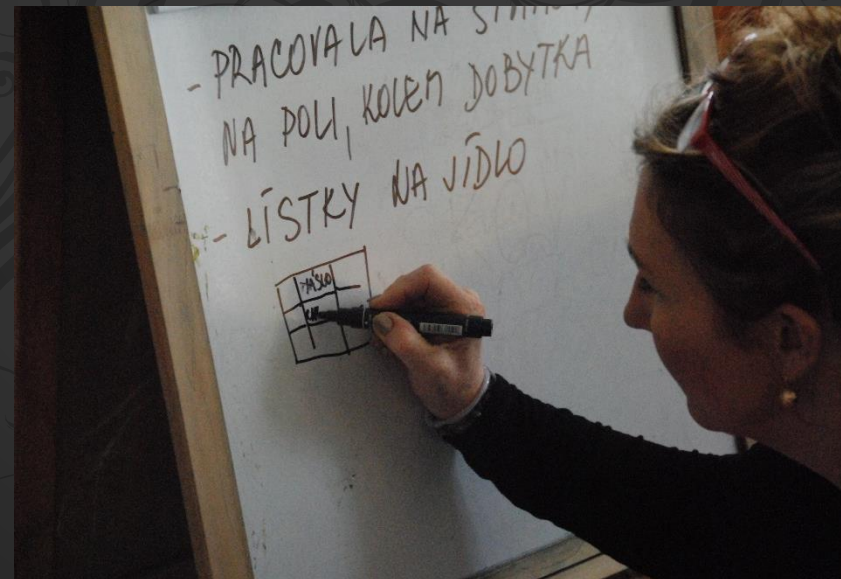 - PRACOVALA NA
NA POLI, KOLEM DOBYTKA
- LÍSTKY NA JÍDLO
MÁSLO